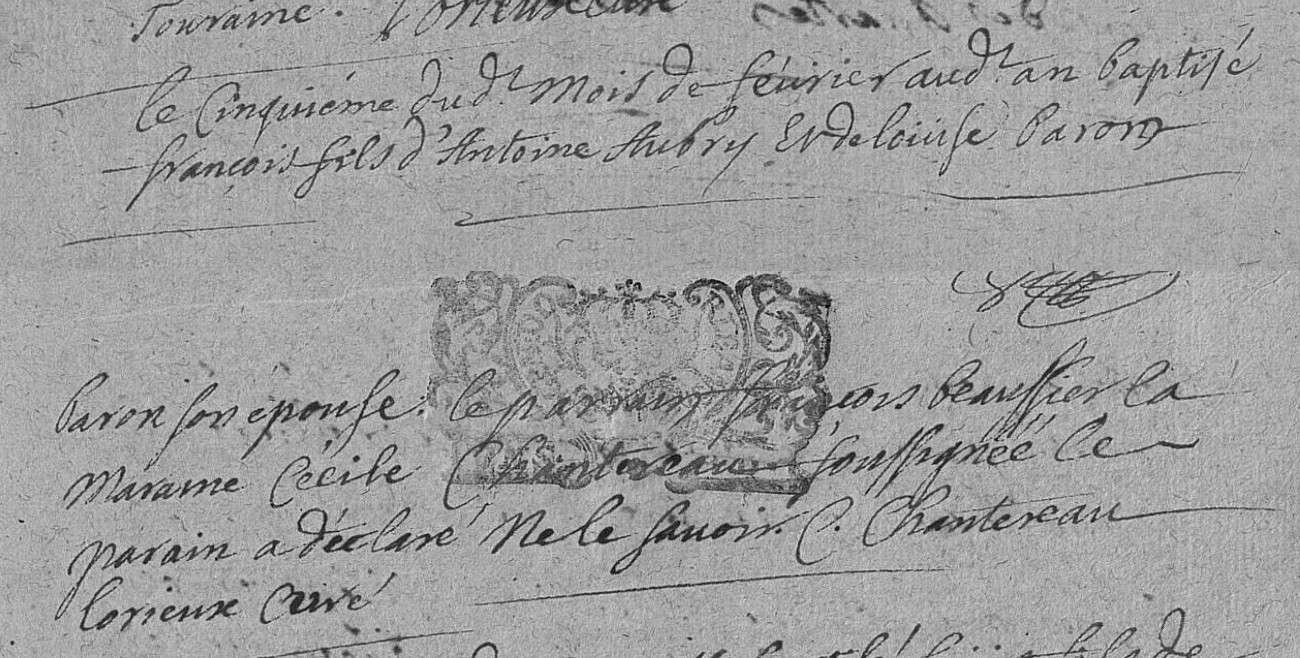 Touraine. Lorieux Curé
le Cinquiéme dud.t Mois de février aud.t an baptisé
françois fils d'Antoine Aubry Et de louise Baron
Baron son épouse. le parrain françois beaussier la
Maraine Cécile Chantereau soussignéé le
parain a déclaré Ne le savoir. C. Chantereau
lorieux Curé